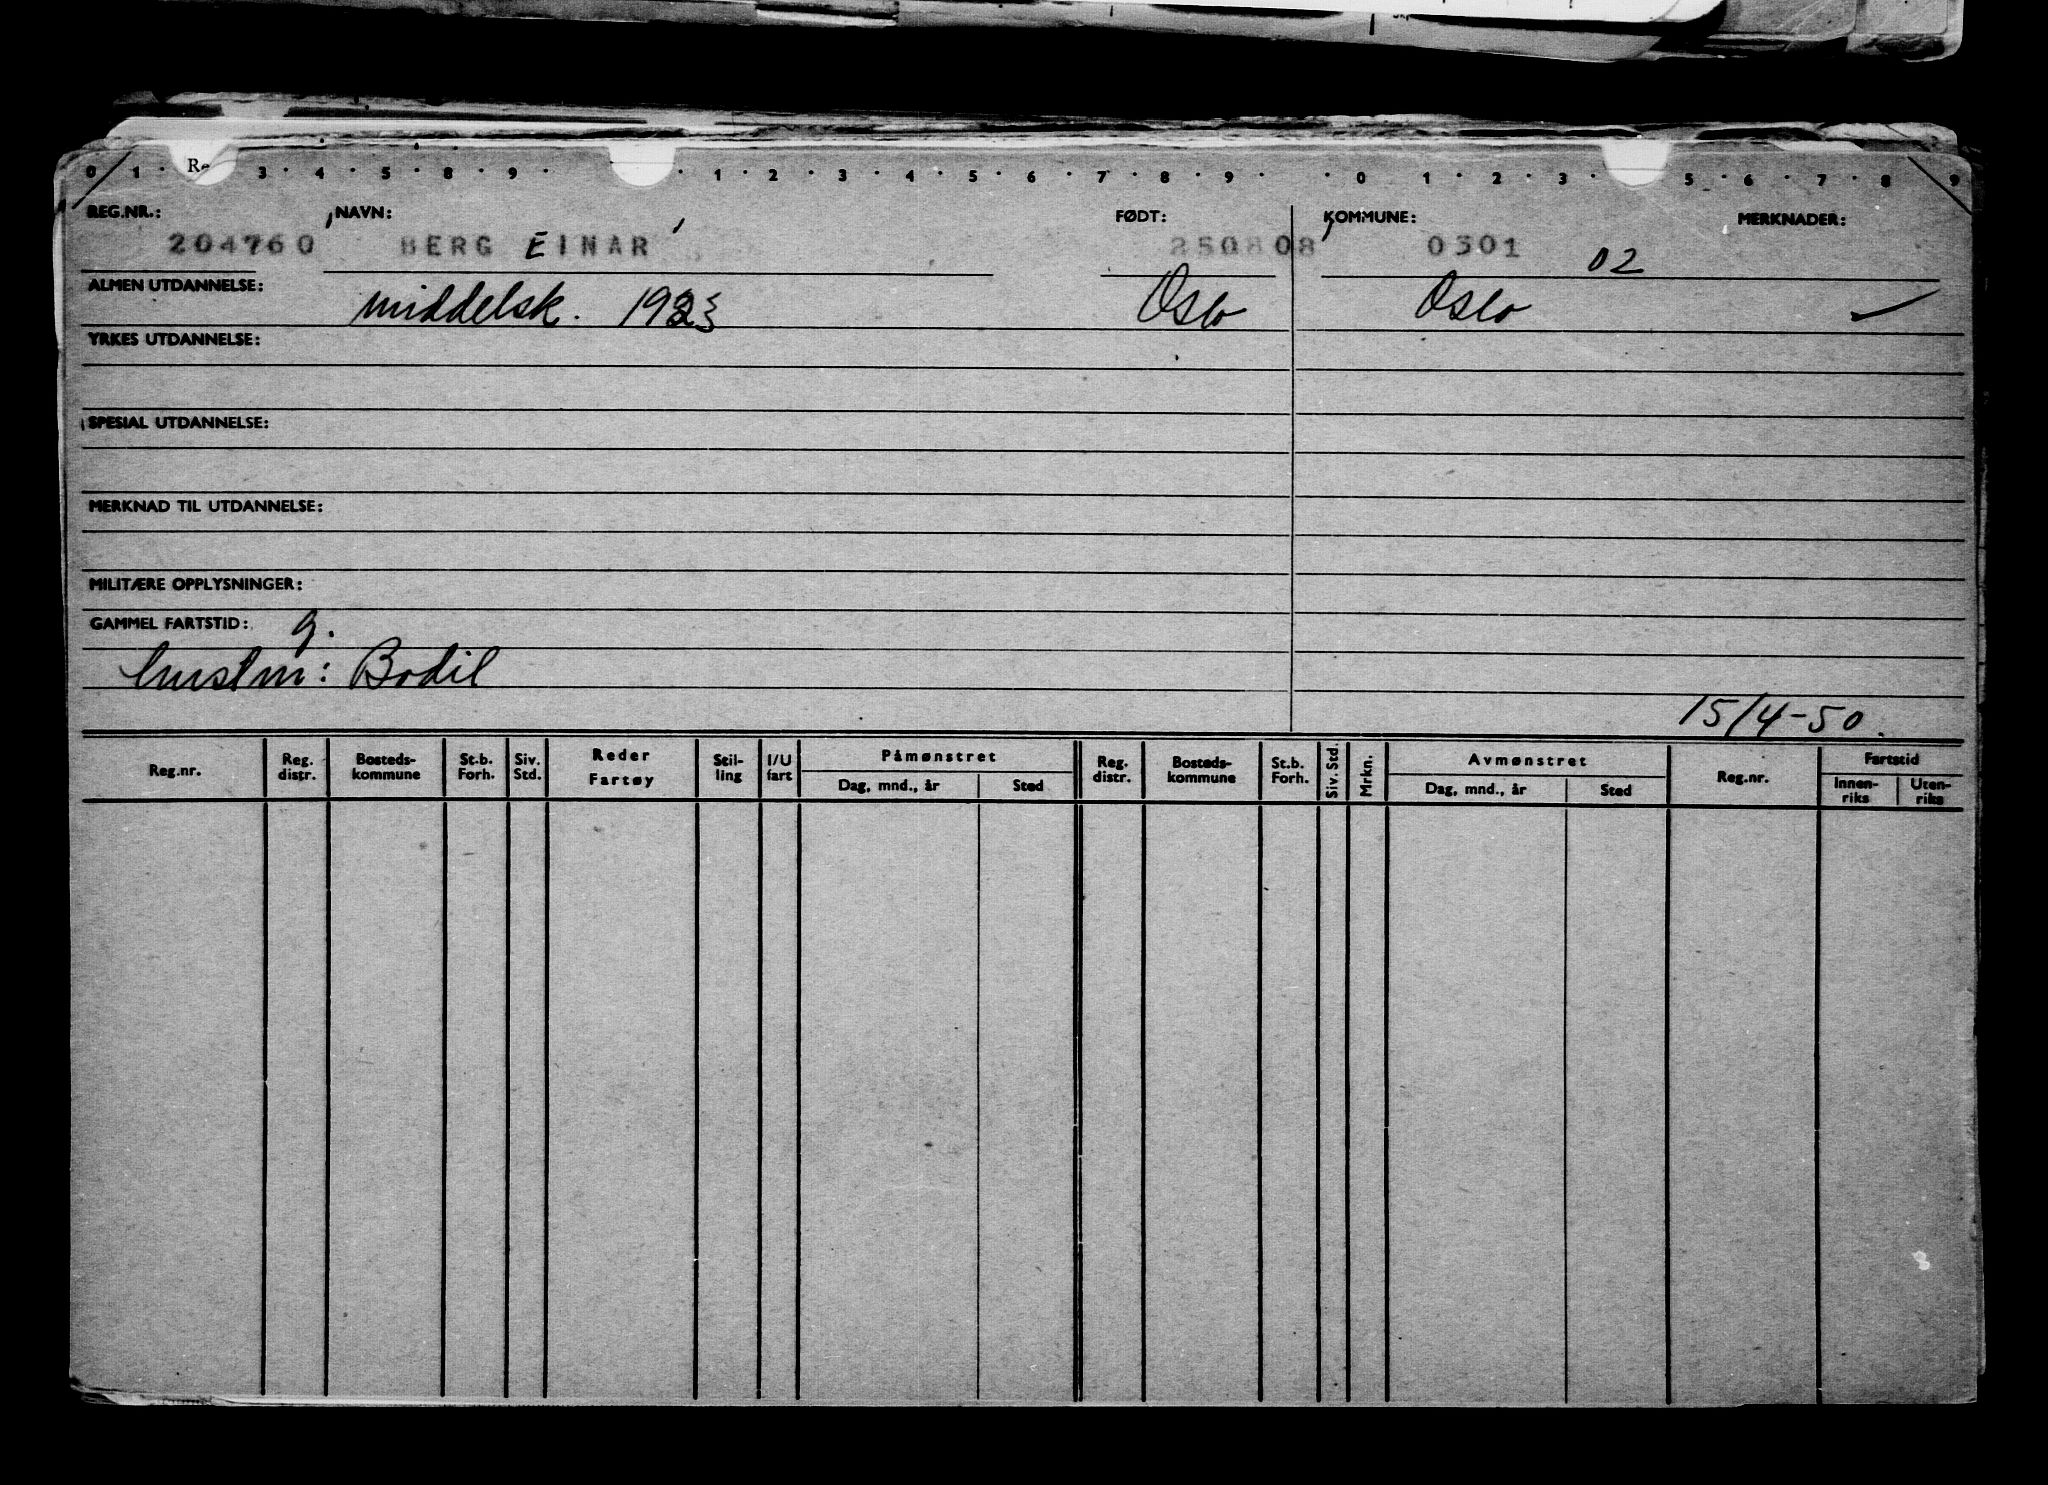 0 1 · Re 3 · 4 · 5 · 8 · 9 · · 1 · 2 · 3 · 4 · 5 · 6 · 7 · 8 · 9 · · 0 1 · 2 · 3 · 5 · 6 · 7 · 8 9
REG.NR.: NAVN: FØDT: KOMMUNE: MERKNADER:
204760 BERG EINAR 250808 0301 02
ALMEN UTDANNELSE: middelsk. 1923 Oslo Oslo
YRKES UTDANNELSE:
SPESIAL UTDANNELSE:
MERKNAD TIL UTDANNELSE:
MILITÆRE OPPLYSNINGER:
GAMMEL FARTSTID: g.
hustru: Bodil
15/4-50.
Reg.nr. Reg. distr. Bosteds-kommune St.b. Forh. Siv. Std. Reder Fartøy Stil-ling I/U fart Påmønstret Dag, mnd., år Sted Reg. distr. Bosteds-kommune St.b. Forh. Siv. Std. Mrkn. Avmønstret Dag, mnd., år Sted Reg.nr. Fartstid Innen-riks Uten-riks